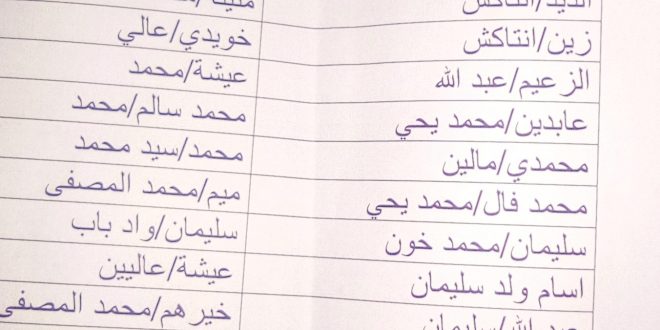 زين/انتاكش خويدي/عالي
الزعيم/عبد الله عيشة/محمد
عابدين/محمد يحي محمد سالم/محمد
محمدي/مالين محمد/سيد محمد
محمد فال/محمد يحي ميم/محمد المصفى
سليمان/محمد خون سليمان/واد باب
اسام ولد سليمان عيشة/عاليين
عبد الله/سليمان خيرهم/محمد المصفى